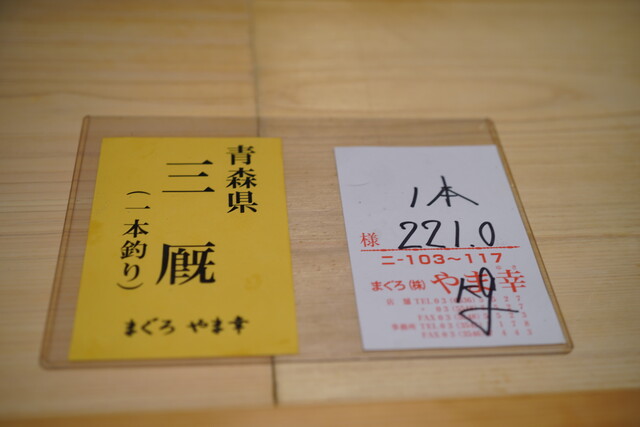 青森県
三厩
(一本釣り)
まぐろ やま幸
1本
221.0
様
ニ-103~117
まぐろ(株)やま幸